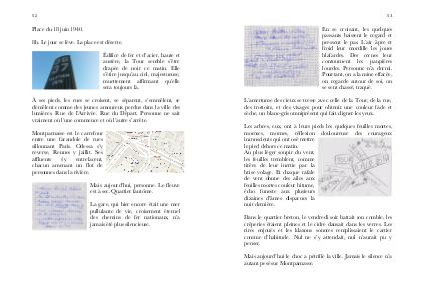 52
Place du 18 juin 1940.
8h. Le jour se lève. La place est déserte.
Édifice de fer et d'acier, haute et
austère, la Tour semble s'être
drapée de noir ce matin. Elle
s'étire jusqu'au ciel, majestueuse,
muettement affirmant qu'elle
sera toujours là.
À ses pieds, les rues se croisent, se séparent, s'emmêlent, se
démêlent comme des jeunes amoureux perdus dans la ville des
lumières. Rue de l'Arrivée. Rue du Départ. Personne ne sait
vraiment où l'une commence et où l'autre s'arrête.
Montparnasse est le carrefour
entre une farandole de rues
sillonnant Paris. Odessa s'y
trouve, Rennes y jaillit. Ses
affluents s'y entrelacent,
chacun amenant un flot de
personnes dans la rivière.
Mais aujourd'hui, personne. Le fleuve
est à sec. Quartier fantôme.
La gare, qui hier encore était une mer
pullulante de vie, croisement éternel
des chemins de fer nationaux, n'a
jamais été plus silencieuse.
53
En se croisant, les quelques
passants baissent le regard et
pressent le pas. L'air âpre et
froid leur mordille les joues
blafardes. Des cernes leur
contournent les paupières
lourdes. Personne n'a dormi.
Pourtant, on a la mine effarée,
on regarde autour de soi, on
se sent chassé, traqué.
L'amertume des cieux se tresse avec celle de la Tour, de la rue,
des trottoirs, et des visages pour obtenir une couleur fade et
sèche, un blanc-gris omniprésent qui fait plisser les yeux.
Les arbres, eux, ont à leurs pieds les quelques feuilles mortes,
mornes, mornes, réflexion douloureuse des courageux
innocents qui ont osé mettre
le pied dehors ce matin.
Au plus léger soupir du vent,
les feuilles tremblent, comme
tirées de leur inertie par la
brise volage. Et chaque rafale
de vent donne des ailes aux
feuilles mortes couleur bitume,
écho funeste aux plusieurs
dizaines d'âmes disparues la
nuit dernière.
Dans le quartier breton, le vendredi soir battait son comble, les
crêperies étaient pleines et le cidre dansait dans les verres. Les
rires enjoués et les klaxons sonores remplissaient le cartier
comme d'habitude. Nul ne s'y attendait, nul n'aurait pu y
penser.
Mais aujourd'hui le choc a pétrifié la ville. Jamais le silence n'a
autant pesé sur Montparnasse.